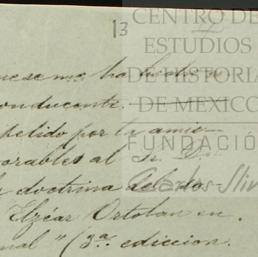 13
CENTRO DE
ESTUDIOS
DE HISTORIA
DE MEXICO
FUNDACIÓ
Carlos Sli
conducente.
petido por tu amio
orables al Sr. D.
doctrina del
Elzéar Ortolan en
nal" (3ª edicción.